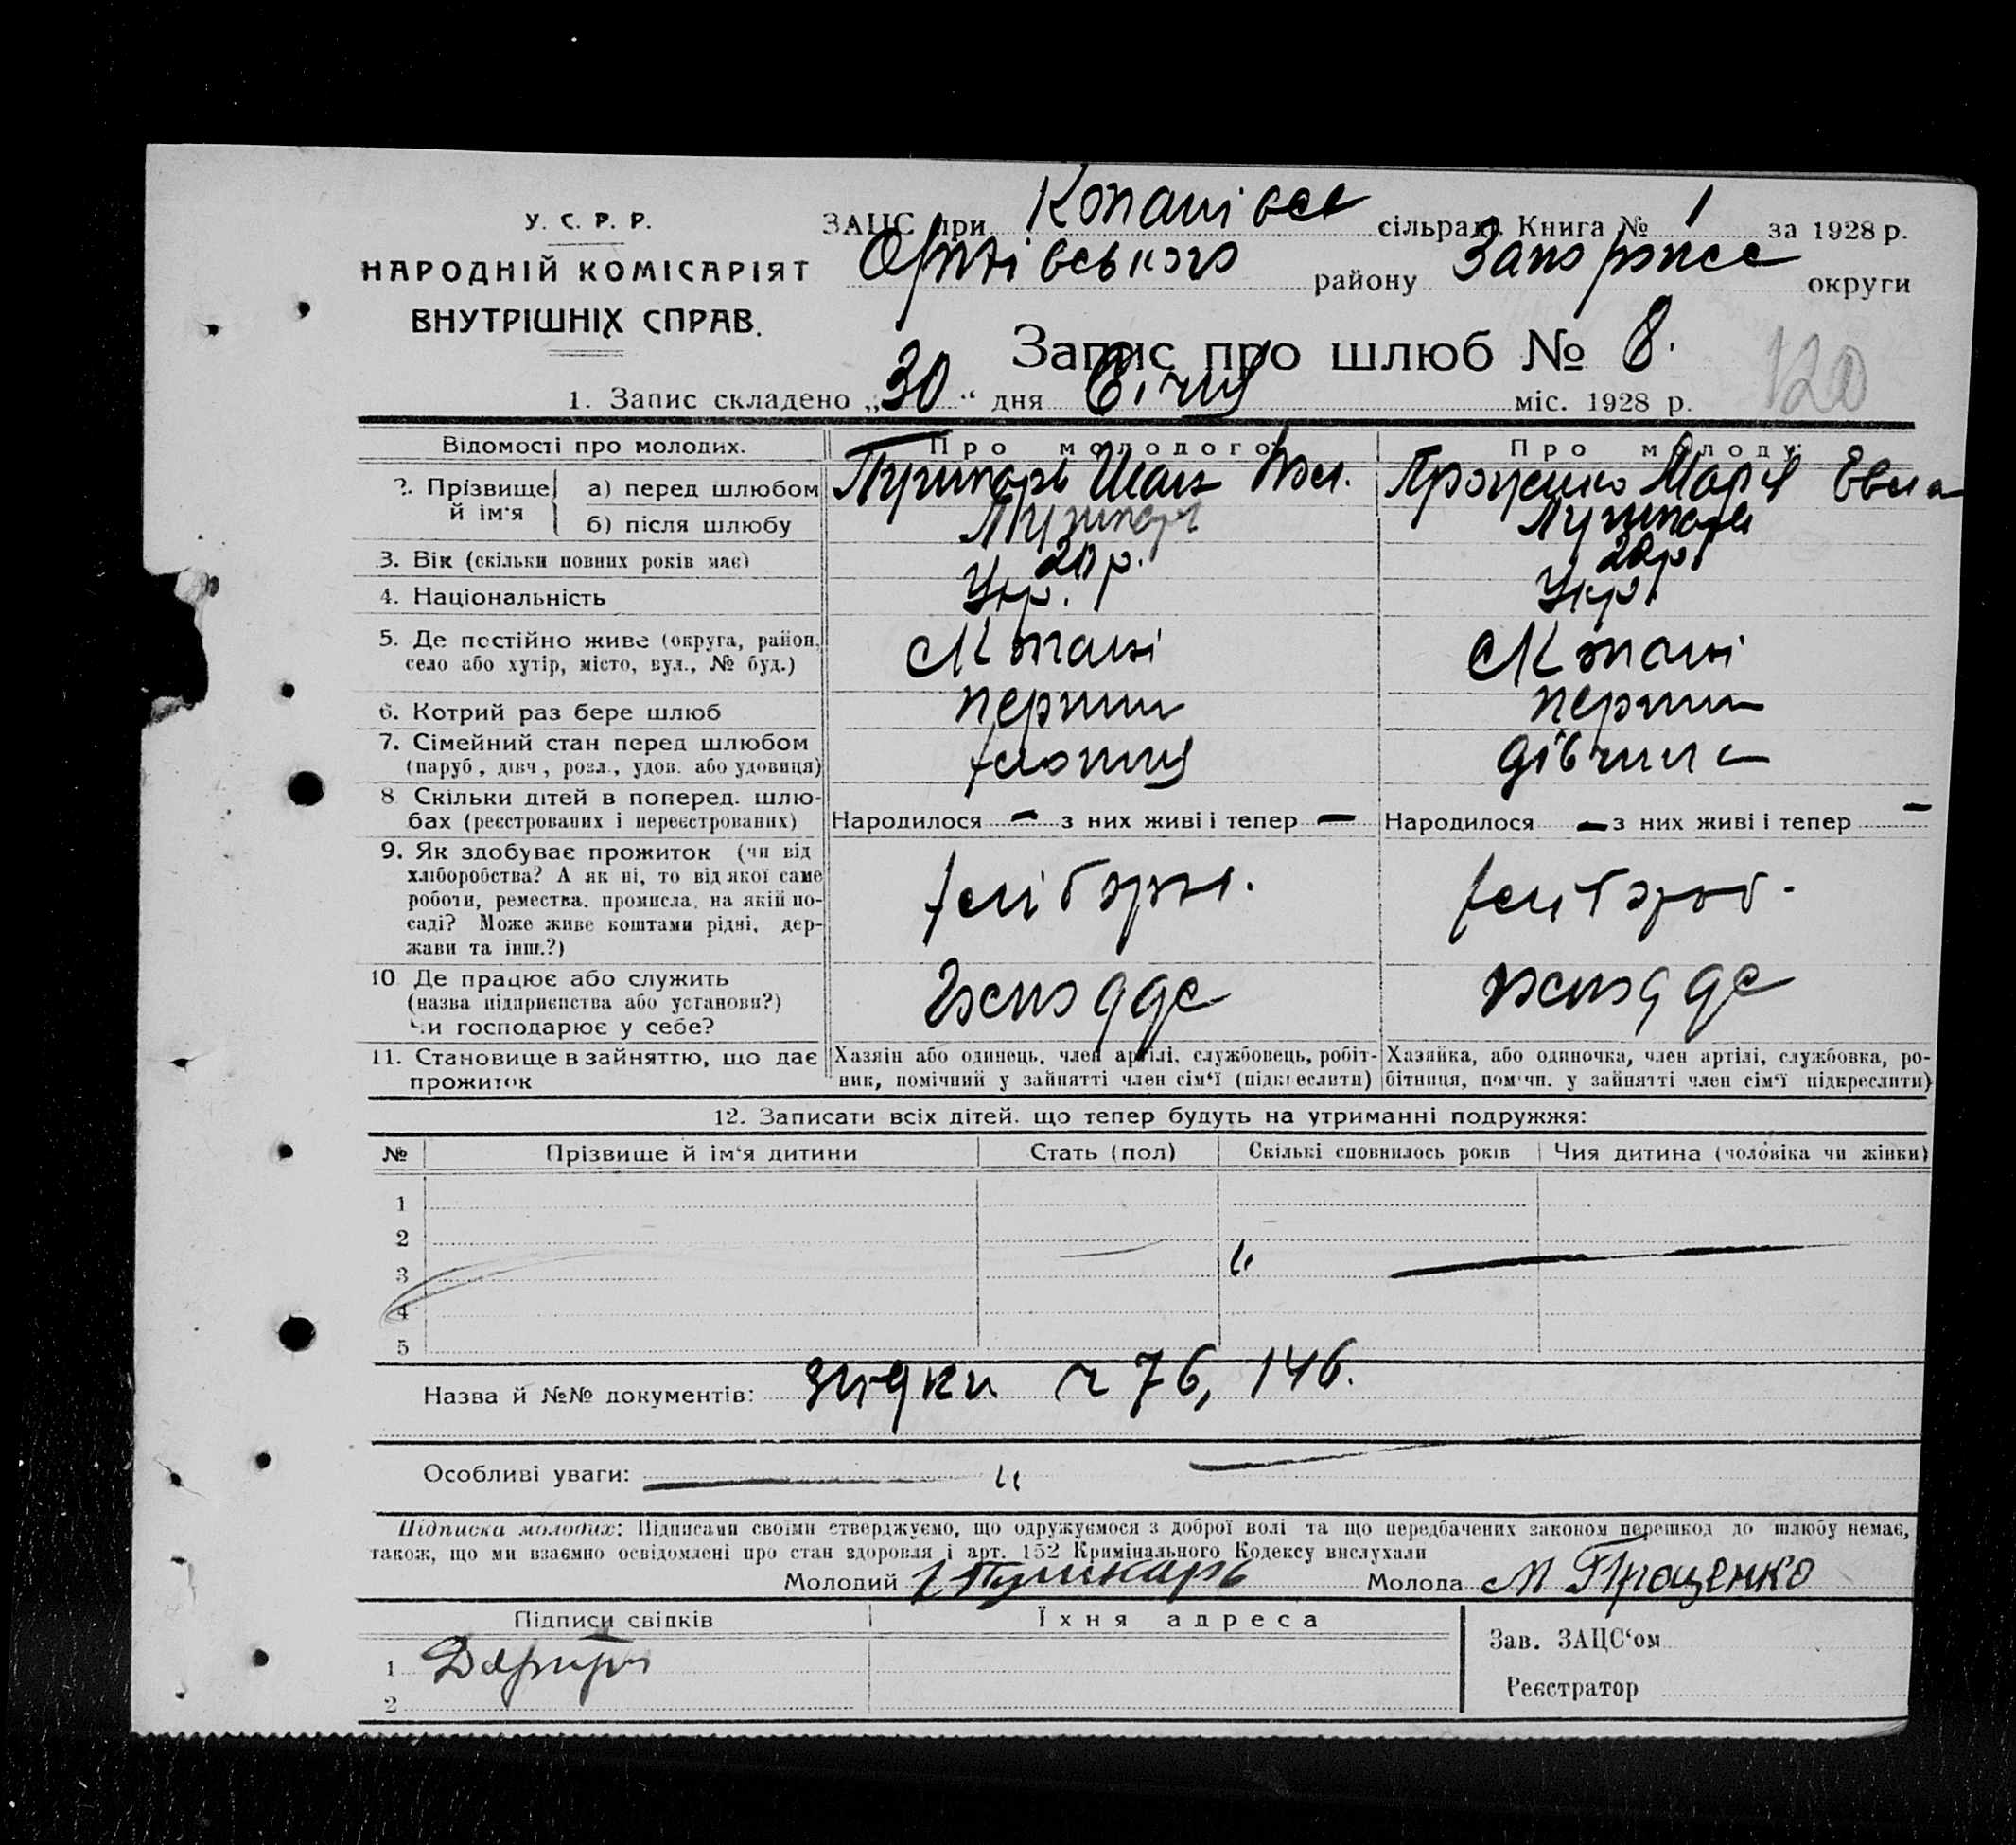 У. С. Р. Р.
НАРОДНІЙ КОМІСАРІЯТ
ВНУТРІШНІХ СПРАВ.
ЗАЦС при Копанівсь сільрад. Книга № 1 за 1928 р.
Оріхівського району Запоріжсь округи
Запис про шлюб № 8.
120
1. Запис складено „30“ дня Січня міс. 1928 р.
Відомості про молодих. Про молодого: Про молоду:
2. Прізвище й ім'я а) перед шлюбом Пушкарь Іван Проценко Марія
б) після шлюбу Пушкарь Пушкарь
3. Вік (скільки повних років має) 20 р. 20 р.
4. Національність Укр. Укр.
5. Де постійно живе (округа, район, село або хутір, місто, вул., № буд.) с Копані с Копані
6. Котрий раз бере шлюб перший перший
7. Сімейний стан перед шлюбом (паруб, дівч, розл., удов. або удовиця) хлопец дівчина
8 Скільки дітей в поперед. шлюбах (реєстрованих і нереєстрованих) Народилося — з них живі і тепер — Народилося — з них живі і тепер —
9. Як здобуває прожиток (чи від хліборобства? А як ні, то від якої саме роботи, ремества, промисла, на якій посаді? Може живе коштами рідні, держави та інш.?) хлібороб. хлібороб.
10 Де працює або служить (назва підприєпства або установи?) Чи господарює у себе?
11. Становище в зайняттю, що дає прожиток Хазяїн або одинець, член артілі, службовець, робітник, помічний у зайнятті член сім‘ї (підкреслити) Хазяйка, або одиночка, член артілі, службовка, робітниця, помічн. у зайнятті член сім‘ї підкреслити)
12. Записати всіх дітей, що тепер будуть на утриманні подружжя:
№ Прізвище й ім‘я дитини Стать (пол) Скількі сповнилось років Чия дитина (чоловіка чи жінки)
1
2
3
4
5
Назва й №№ документів: 76, 146.
Особливі уваги:
Підписка молодих: Підписами своїми стверджуємо, що одружуємося з доброї волі та що передбачених законом перешкод до шлюбу немає,
також, що ми взаємно освідомлені про стан здоровля і арт. 152 Кримінального Кодексу вислухали
Молодий Пушкарь Молода М Проценко
Підписи свідків Їхня адреса
Зав. ЗАЦС‘ом
1
Реєстратор
2